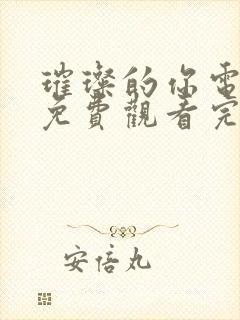 璀璨的你電
免費觀看完
安倍丸